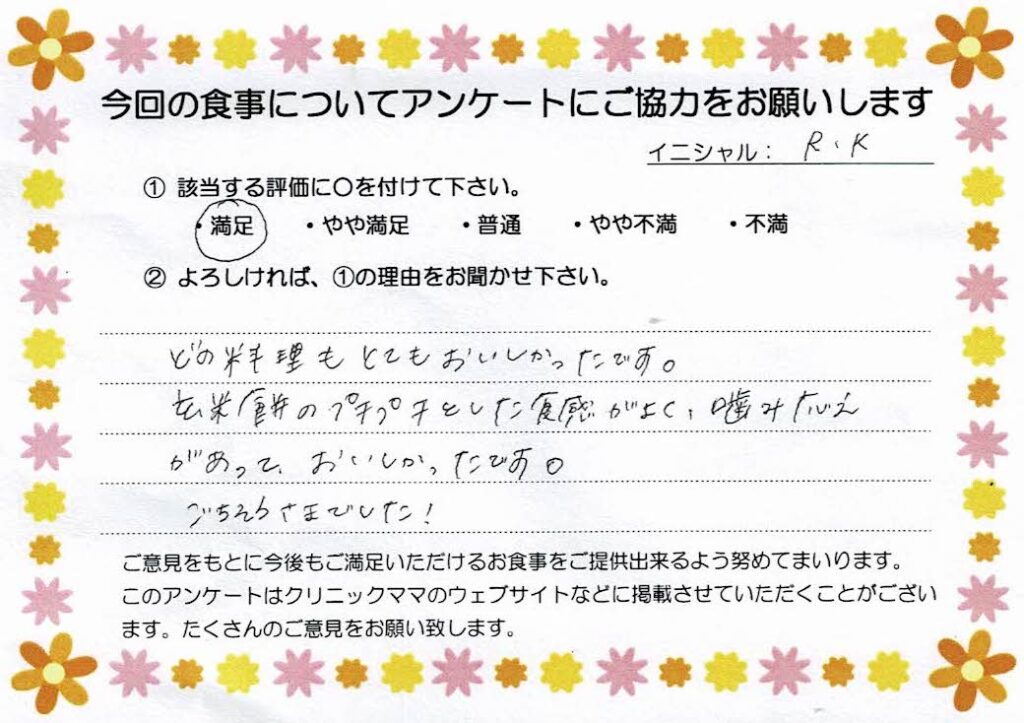 今回の食事についてアンケートにご協力をお願いします
イニシャル： R.K
① 該当する評価に〇を付けて下さい。
・満足 ・やや満足 ・普通 ・やや不満 ・不満
② よろしければ、①の理由をお聞かせ下さい。
どの料理もとてもおいしかったです。
玄米餅のプチプチとした食感がよく、噛みたえ
があって、おいしかったです。
ごちそうさまでした！
ご意見をもとに今後もご満足いただけるお食事をご提供出来るよう努めてまいります。
このアンケートはクリニックママのウェブサイトなどに掲載させていただくことがござい
ます。たくさんのご意見をお願い致します。